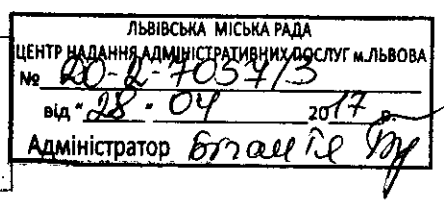 ЛЬВІВСЬКА МІСЬКА РАДА
ЦЕНТР НАДАННЯ АДМІНІСТРАТИВНИХ ПОСЛУГ м.ЛЬВОВА
№ 20-2-7057/3
від "28" 04 2017 р.
Адміністратор